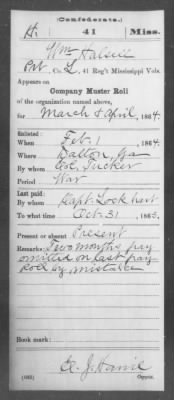 (Confederate.)
H. 41 Miss.
Wm Halsell
Pvt, Co. L, 41 Reg't Mississippi Vols.
Appears on
Company Muster Roll
of the organization named above,
for March & April, 1864.
Enlisted:
When Feb. 1, 1864.
Where Dalton, Ga
By whom Col. Tucker
Period War
Last paid:
By whom Capt. Lockhart
To what time Oct. 31, 1863.
Present or absent Present
Remarks: Two months pay
omitted on last pay
roll by mistake
Book mark:
(642)
Copyist.